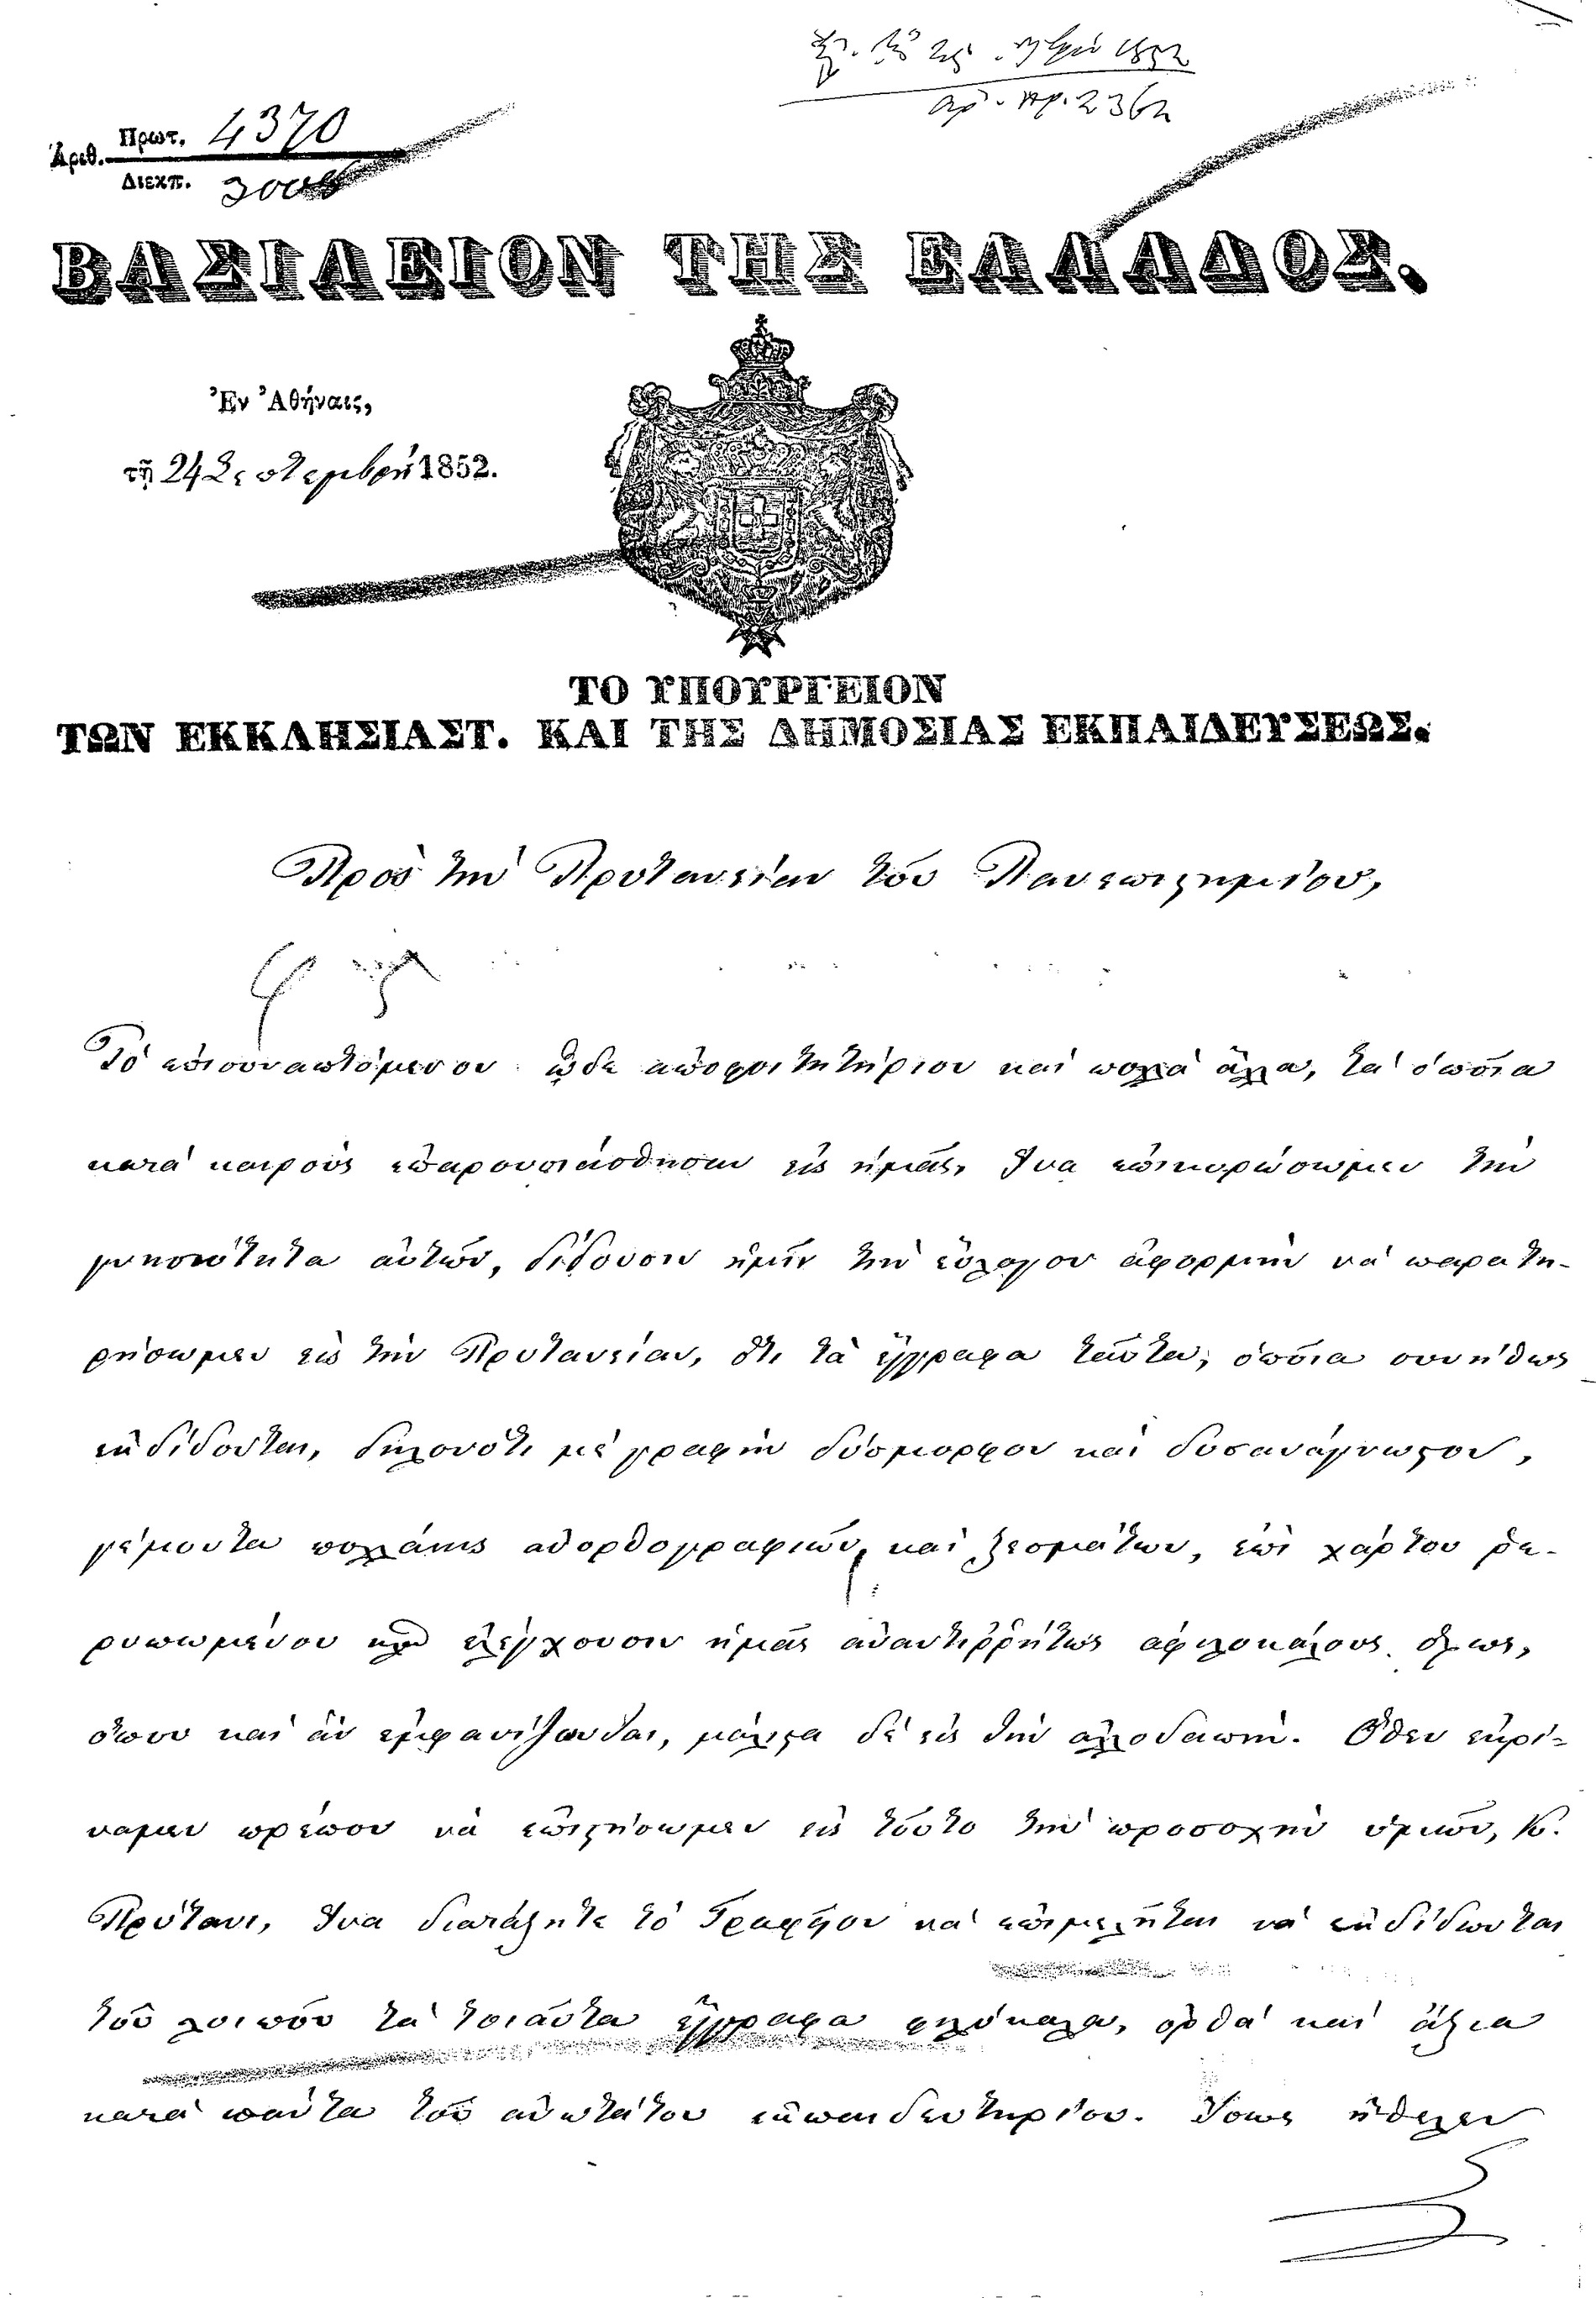 1852
ἀρ. πρ. 2362
Ἀριθ. Πρωτ. 4370
Διεκπ.
ΒΑΣΙΛΕΙΟΝ ΤΗΣ ΕΛΛΑΔΟΣ.
Ἐν Ἀθήναις,
τῇ 24 Σεπτεμβρίου 1852.
ΤΟ ΥΠΟΥΡΓΕΙΟΝ
ΤΩΝ ΕΚΚΛΗΣΙΑΣΤ. ΚΑΙ ΤΗΣ ΔΗΜΟΣΙΑΣ ΕΚΠΑΙΔΕΥΣΕΩΣ.
Πρὸς τὴν Πρυτανείαν τοῦ Πανεπιςημίου,
Τὸ ἐπισυναπτόμενον ὧδε ἀποφοιτητήριον καὶ πολλὰ ἄλλα, τὰ ὁποῖα
κατὰ καιροὺς ἐπαρουσιάσθησαν εἰς ἡμᾶς, ἵνα ἐπικυρώσωμεν τὴν
γνησιότητα αὐτῶν, δίδουσιν ἡμῖν τὴν εὔλογον ἀφορμὴν νὰ παρατη-
ρήσωμεν εἰς τὴν Πρυτανείαν, ὅτι τὰ ἔγγραφα ταῦτα, ὁποῖα συνήθως
ἐκδίδονται, δηλονότι μὲ γραφὴν δύσμορφον καὶ δυσανάγνωςον,
γέμοντα πολλάκις ἀνορθογραφιῶν, καὶ ξεσμάτων, ἐπὶ χάρτου ῥε-
ρυπωμένου κλπ ἐλέγχουσιν ἡμᾶς ἀναντιῤῥήτως ἀφιλοκάλους ὅλως,
ὅπου καὶ ἂν ἐμφανίζωνται, μάλιςα δὲ εἰς τὴν ἀλλοδαπήν. Ὅθεν ἐκρί-
ναμεν πρέπον νὰ ἐπιςήσωμεν εἰς τοῦτο τὴν προσοχὴν ὑμῶν, Κ.
Πρύτανι, ἵνα διατάξητε τὸ Γραφεῖον νὰ ἐπιμελῆται νὰ ἐκδίδωνται
τοῦ λοιποῦ τὰ τοιαῦτα ἔγγραφα φιλόκαλα, ὀρθὰ καὶ ἄξια
κατὰ πάντα τοῦ ἀνωτάτου ἐκπαιδευτηρίου. Ἴσως ἤθελεν